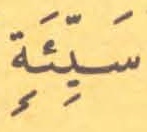 سَيِّئَةٍ